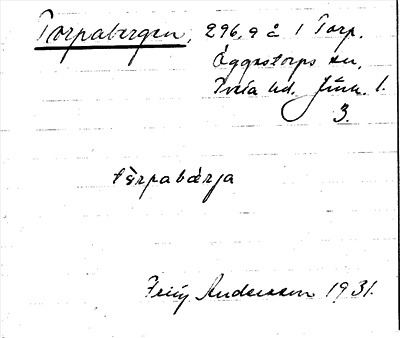 Torpabergen, 296,9 å 1 Torp.
Eggestorps sn,
Tveta hd. Jönk. l.
3
tàrpabárja
Fritz Andersson 1931.